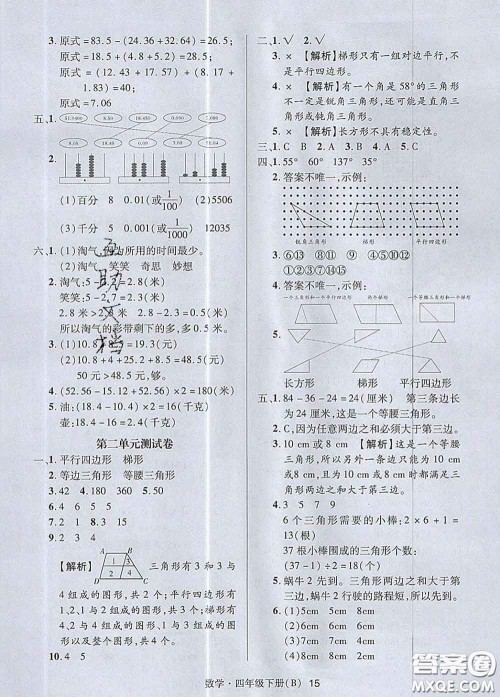 3. 原式=83.5-(24.36+32.64)=26.5;
原式=18.5+(4.54+5.46)=28.5;
原式=(12.43+17.57)+(8.19+1.81)=40;
原式=7.06
五、1.
2.
(1)百分 8 0.01(或1/100) (2)5506
(3)千分 5 0.001(或1/1000) (4)12
六、1.(1)淘气 因为所用的时间最少。
(2)淘气 笑笑 奇思 妙想
2. 淘气:5-2.2=2.8(米)
所以淘气的彩带剩下的多,多0.5米。
4.(52.56-15.12+52.56)×2=180(米)
5. 油:(18.4-10.4)×2=16(千克)
壶:18.4-16=2.4(千克)
第二单元测试卷
一、1. 平行四边形 梯形
2. 等边三角形 等腰三角形
3. 42 4. 180 360 5. 50
6. 5 5 5
7. 2 1 8. 3 15
9. 2 2 3 3
【解析】 三角形有3和3与
A B C D 1 2 3 4
4组成的图形,共2个;平行四边形有
1、2、1与2组成的图形,共3个;梯形
有4、2与4、1与2与3与4组成的图
形,共3个。
10. 4 5
二、1. √ 2. √
3. × 【解析】梯形只有一组对边平行,不
是平行四边形。
4. × 【解析】有一个角是58°的三角形
不一定是锐角三角形,还可能是直角三
角形或钝角三角形。
5. × 【解析】长方形不具有稳定性。
三、1. C 2. A 3. B 4. A 5. A
四、1. 55° 60° 137° 35°
2. 答案不唯一,示例:
锐角三角形 梯形 平行四边形
3. ⑥⑬ ⑧⑪ ⑨ ⑦⑩⑫
①②③④⑤⑥⑭⑮
4. 答案不唯一,示例:
一个三角形和一个平行四边形 两个梯形 一个三角形和一个梯形
5.
长方形 梯形 平行四边形
五、1. 84-36-24=24(厘米) 第三条边长
为24厘米,这是一个等腰三角形。
2. ①任意两边之和必须大于第三边。
3. 10 cm 或 8 cm 【解析】因为是等腰三角形,
所以另外一条边只能与其中一条边相
等,即10 cm或8 cm,并且满足任意两边
之和大于第三边。
4. 7 2×3+1=7
6个三角形需要的小棒:2×6+1=
13(根)
37根小棒围成的三角形个数:
(37-1)÷2=18(个)
5. 蜗牛2先到。三角形两边之和大于第三
边,蜗牛2行驶的路程短,所以先到。
6.(1)5cm 5cm 8cm
(2)5cm 8cm 8cm
(3)2cm 5cm 5cm
(4)2cm 8cm 8cm
数学·四年级下册(B) 15
答案圈
MXQE.COM